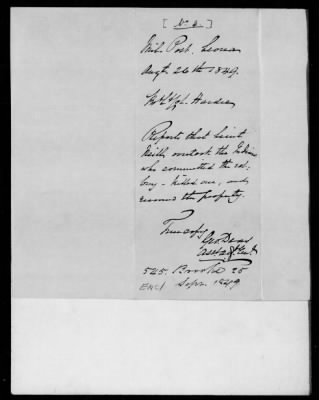 [No 2.]
Mil. Post. Leona
Augt. 26th 1849.
Hardee
Reports that Lieut
overtook the Indians
who committed the rob-
bery - killed one, and
recovered the property.
True copy
Geo Deas
Asst Adjt Genl
525. Brooke 25
Encl Sepr. 1849